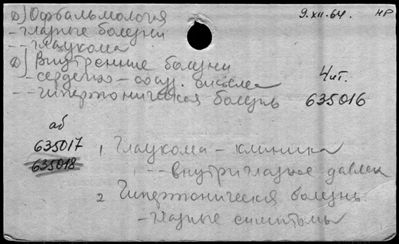 D) Офтальмология 9.XII.64. НР
- глазные болезни
- - глаукома
D) Внутренние болезни
- сердечно-сосуд. система 4 ит.
- - гипертоническая болезнь 635016
аб
635017 1 Глаукома - клиника
635018 - - внутриглазное давлен
2 Гипертоническая болезнь
- глазные симптомы